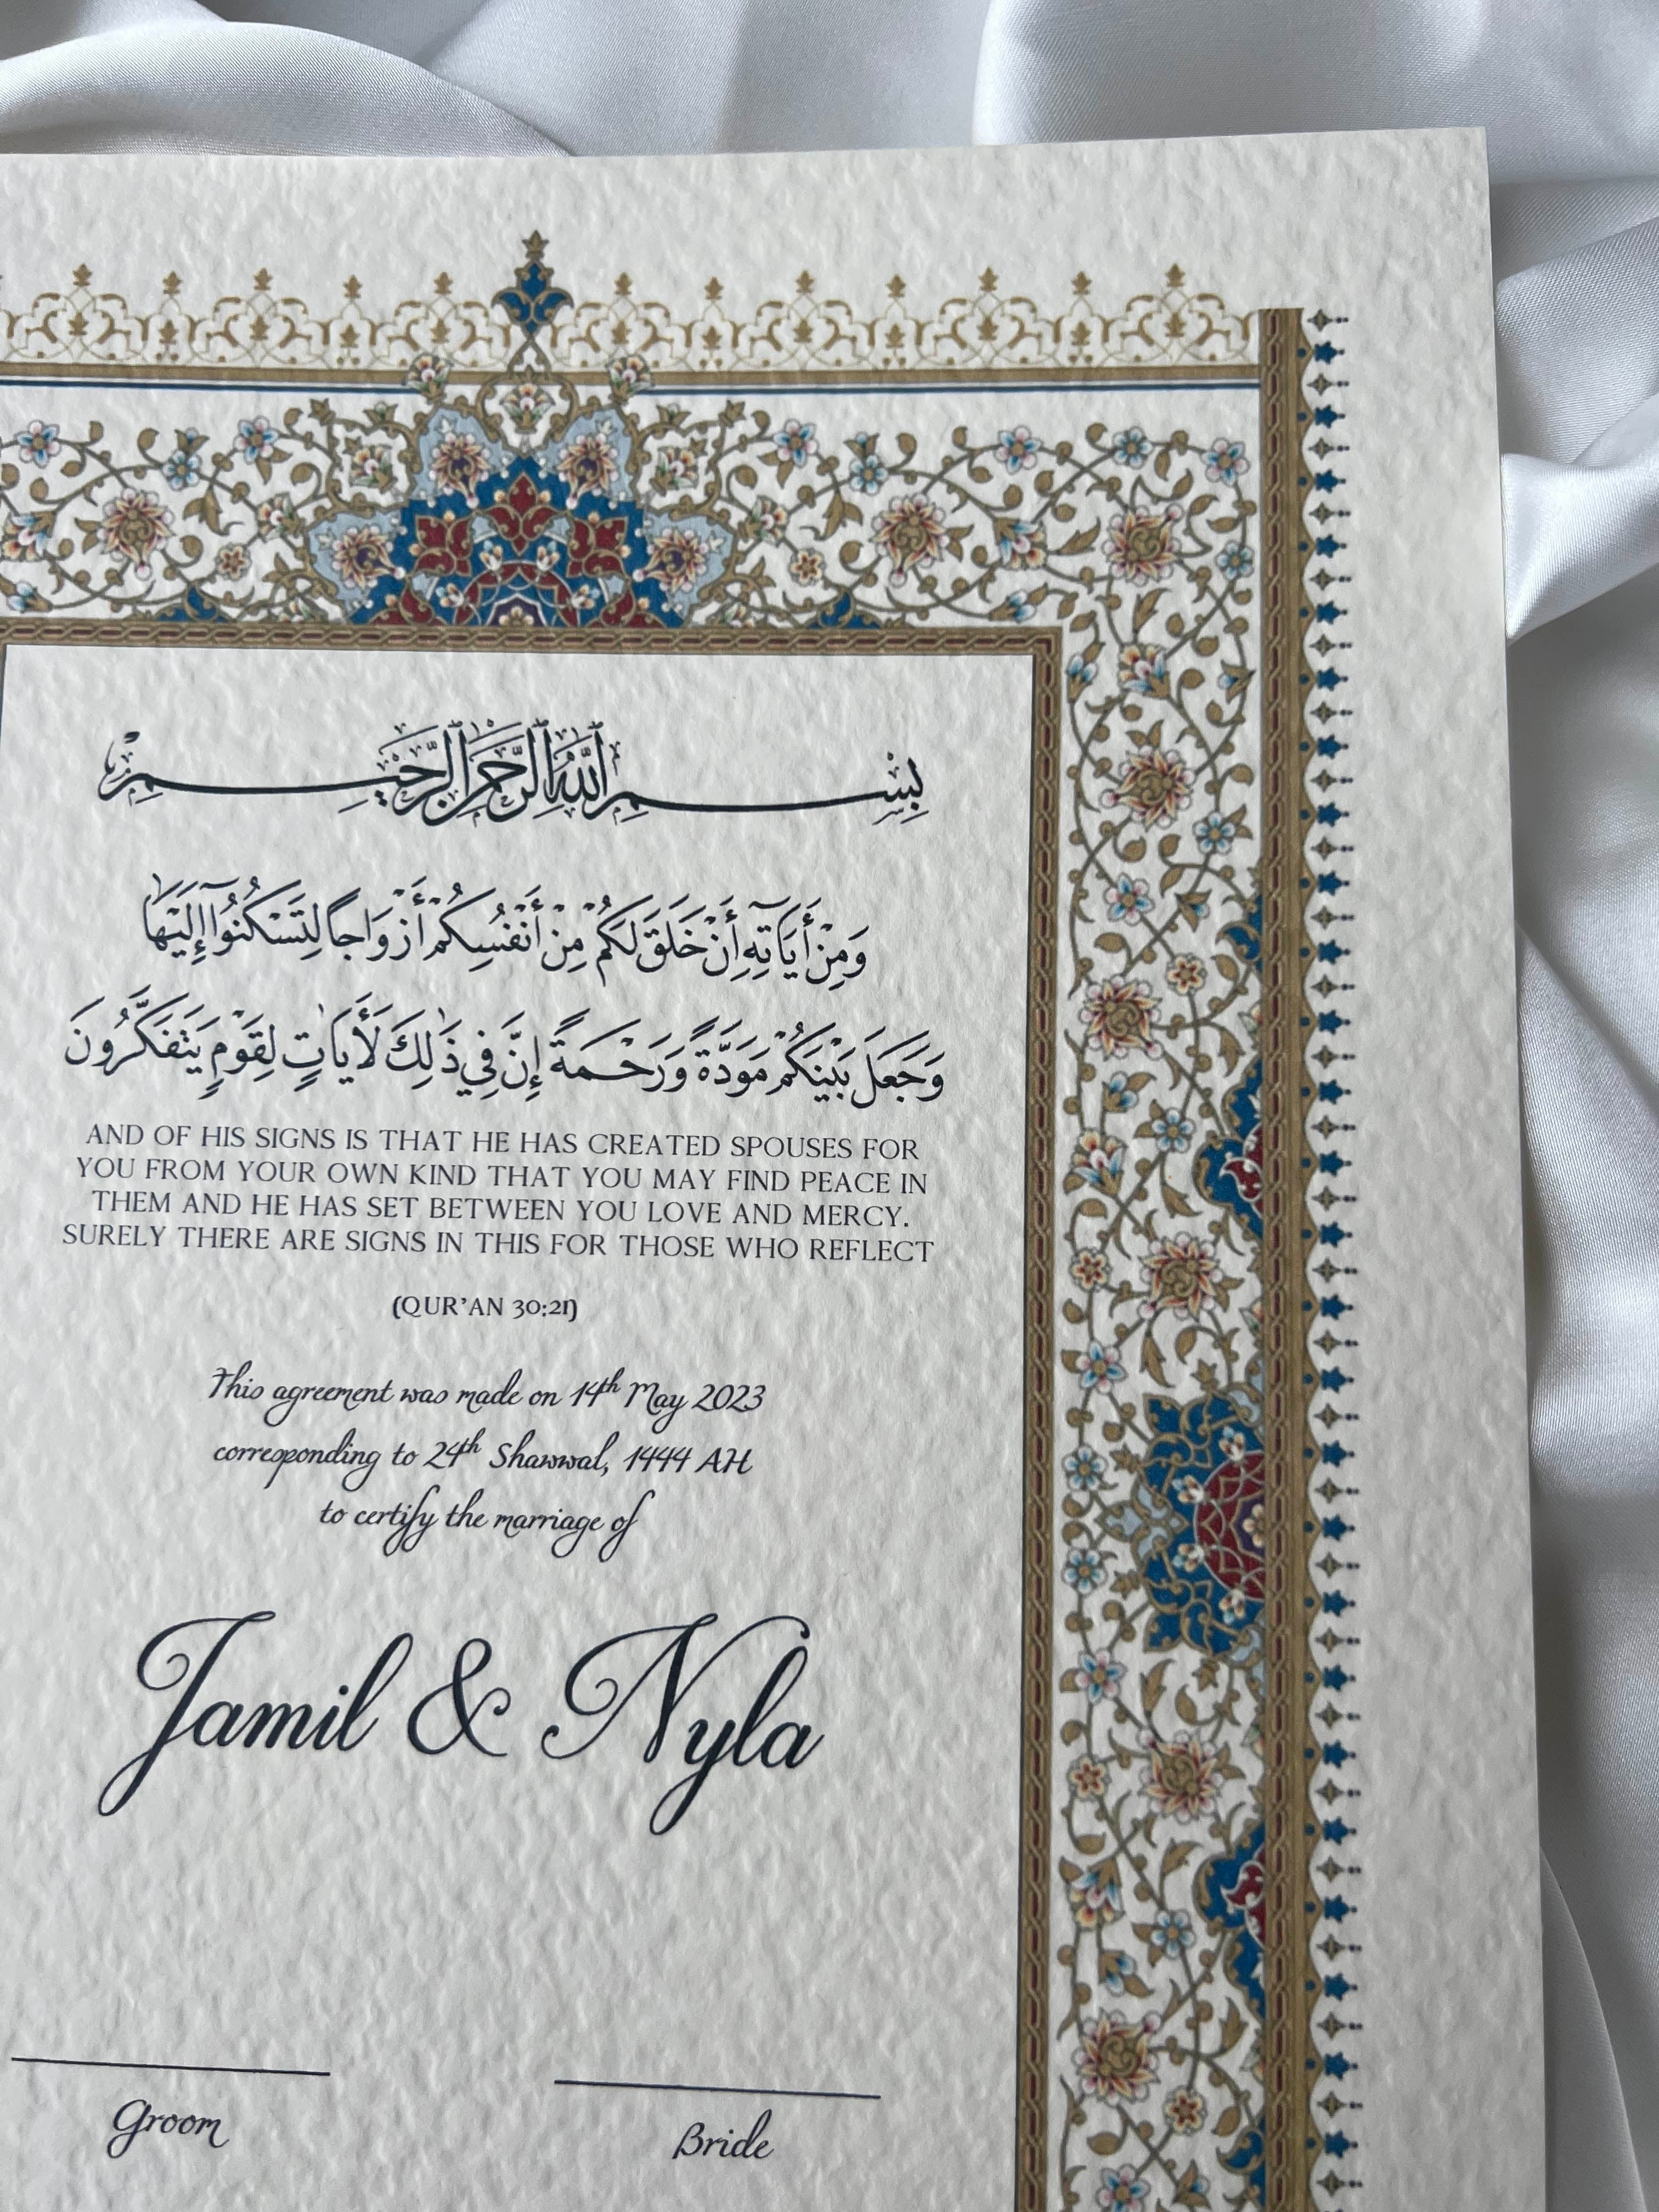 بِسْمِ اللَّهِ الرَّحْمَنِ الرَّحِيمِ
وَمِنْ أَيَاتِهِ أَنْ خَلَقَ لَكُمْ مِنْ أَنْفُسِكُمْ أَزْوَاجًا لِتَسْكُنُوا إِلَيْهَا
وَجَعَلَ بَيْنَكُمْ مَوَدَّةً وَرَحْمَةً إِنَّ فِي ذَٰلِكَ لَأَيَاتٍ لِقَوْمٍ يَتَفَكَّرُونَ
AND OF HIS SIGNS IS THAT HE HAS CREATED SPOUSES FOR
YOU FROM YOUR OWN KIND THAT YOU MAY FIND PEACE IN
THEM AND HE HAS SET BETWEEN YOU LOVE AND MERCY.
SURELY THERE ARE SIGNS IN THIS FOR THOSE WHO REFLECT
(QUR'AN 30:21)
This agreement was made on 14th May 2023
corresponding to 24th Shawwal, 1444 AH
to certify the marriage of
Jamil & Nyla
Groom
Bride